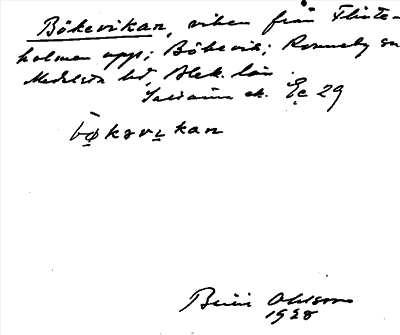 Bökevikan, viken från Flinte-
holmen upp; Bökevik; Ronneby sn
Medelsta hd, Blek. län
ek. Ec 29
bøkəvikan
Ohlsson
1928